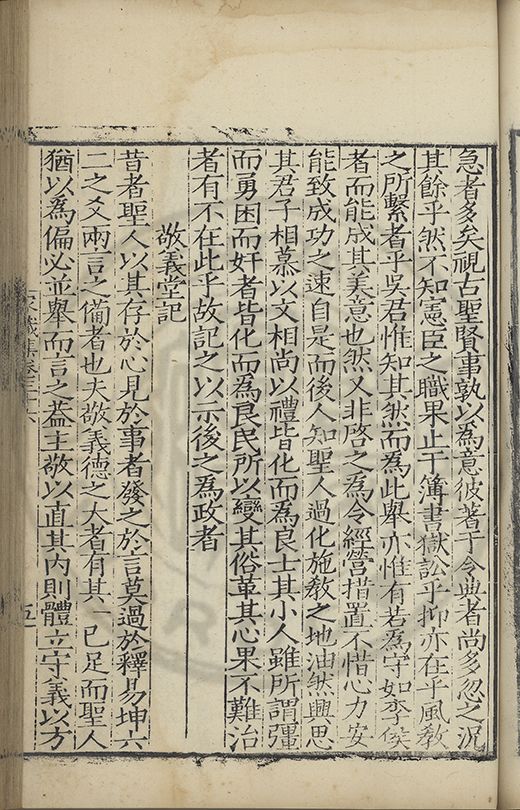 急者多矣視古聖賢事孰以為意彼著于令典者尚多忽之況
其餘乎然不知憲臣之職果止于簿書獄訟乎抑亦在乎風教
之所繫者乎吳君惟知其然而為此舉亦惟有若為守如李侯
者而能成其美意也然又非啓之為令經營措置不惜心力安
能致成功之速自是而後人知聖人過化施教之地油然興思
其君子相慕以文相尚以禮皆化而為良士其小人雖所謂彊
而勇困而奸者皆化而為良民所以變其俗革其心果不難治
者有不在此乎故記之以示後之為政者
敬義堂記
昔者聖人以其存於心見於事者發之於言莫過於釋易坤六
二之爻兩言之備者也夫敬義德之大者有其一已足而聖人
猶以為偏必並舉而言之蓋主敬以直其內則體立守義以方
家藏集卷三十六
五